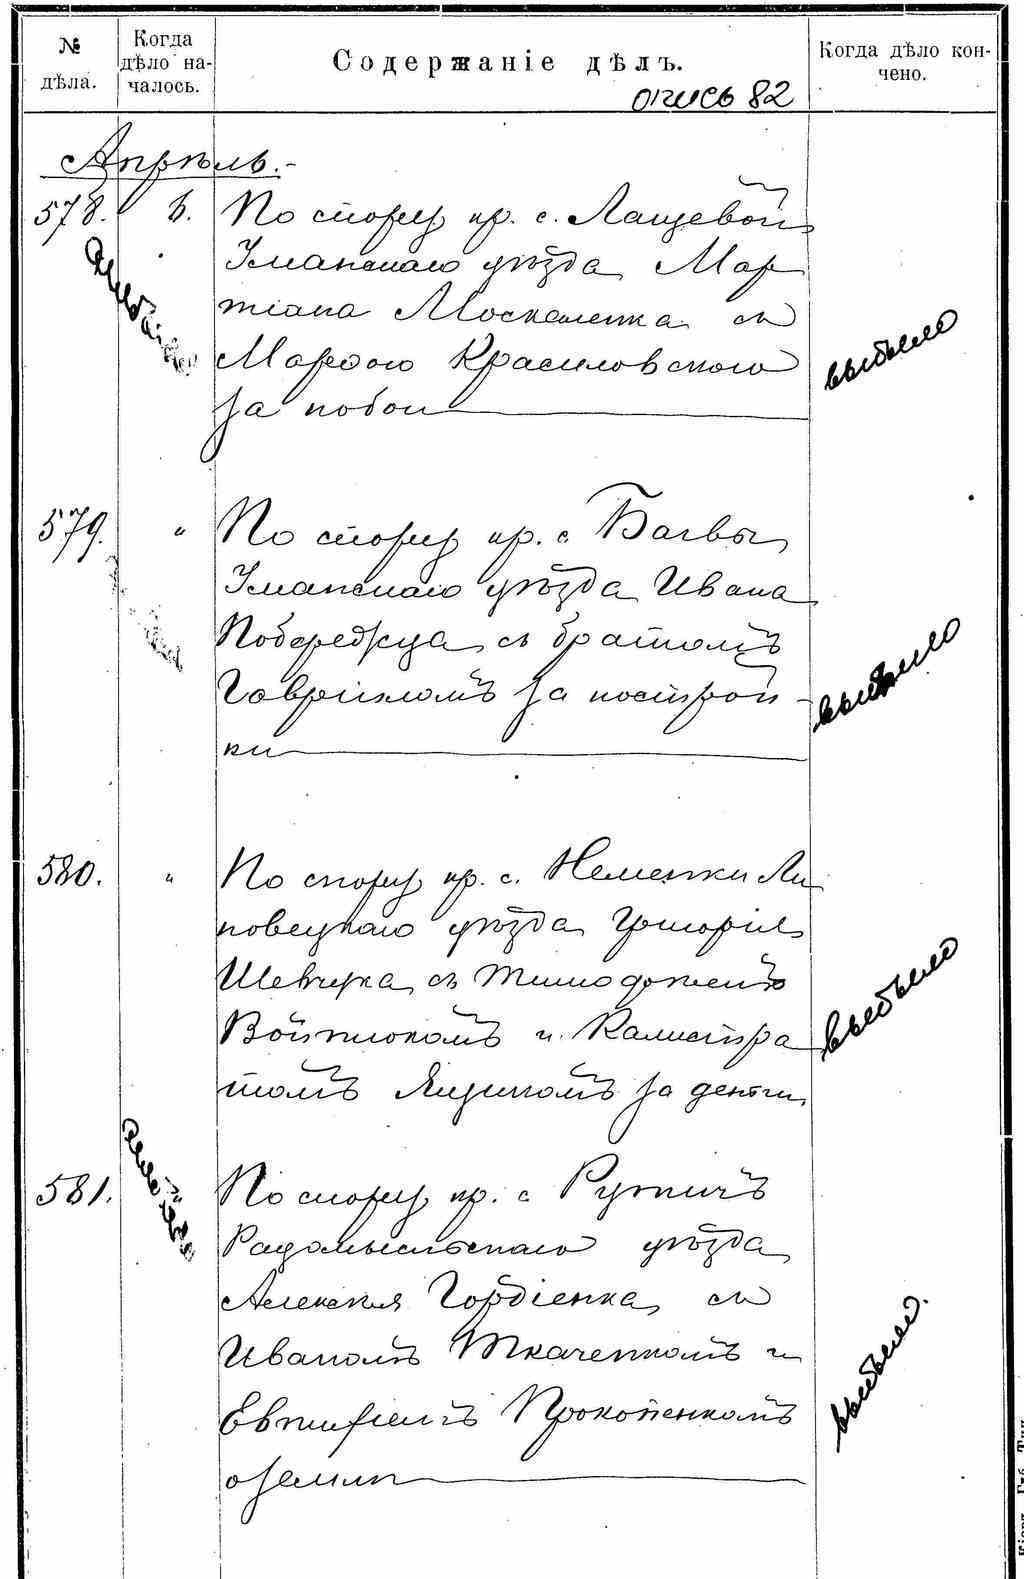 № дѣла.
Когда дѣло на-
чалось.
Содержаніе дѣлъ.
Когда дѣло кон-
чено.
опись 82
Апрѣль.
578. 6. По спору кр. с. Лащевой
Уманскаго уѣзда Мар
тіана Москаленка съ
Марѳою Красиловскою
за побои
выбыло
579. " По спору кр. с Багвы
Уманскаго уѣзда Ивана
Побережца съ братомъ
Гавриломъ за построй-
ки
выбыло
580. " По спору кр. с. Неменки Ли
повецкаго уѣзда Григорія
Шевчука съ Тимофеемъ
Войтюкомъ и Калистра
томъ Яцукомъ за деньги
выбыло
581. " По спору кр. с Рутичъ
Радомысльскаго уѣзда
Алексѣя Гордіенка съ
Иваномъ Ткаченкомъ и
Евтифіемъ Прокопенкомъ
о землѣ
выбыло.
Кіевъ. Губ. Тип.